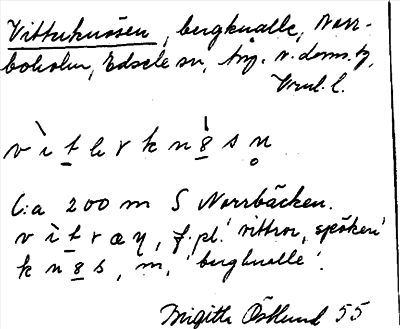 Vitterknösen, bergknalle, Norr-
boholm, Edsele sn, Ång. v. doms. h,
Vnl. l.
v ì t l e r k n 8 s n
C:a 200 m S Norrbäcken.
v ì t r æ r, f. pl. 'vittror, spöken'
k n 8 s, m, 'bergknalle'.
Birgitta Östlund 55